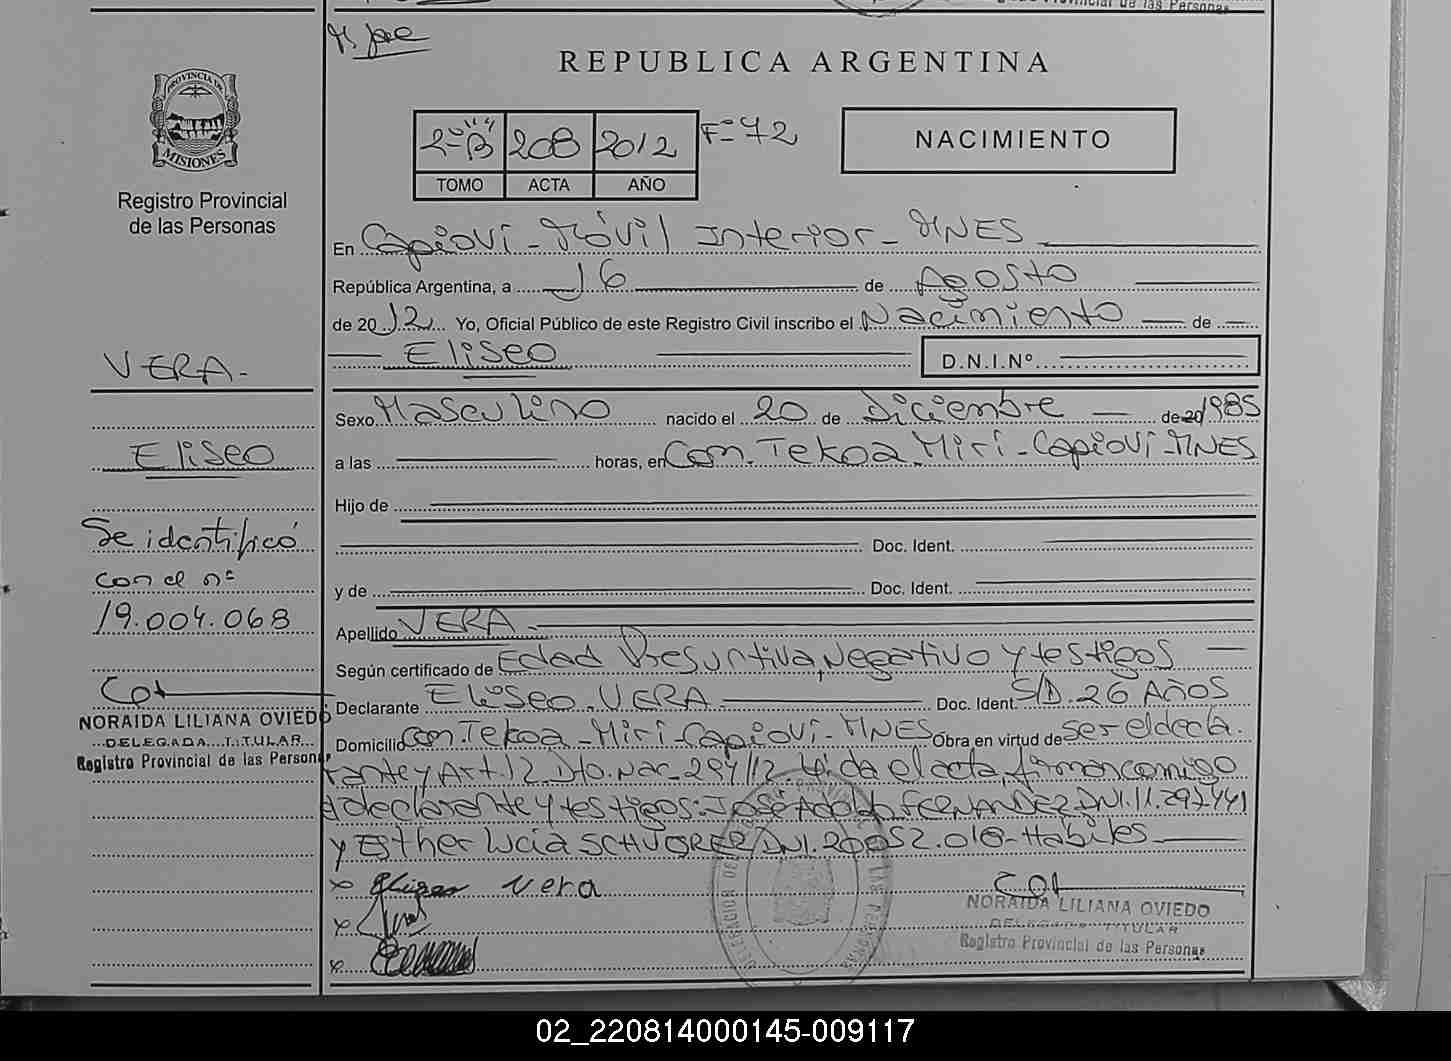 Provincial de las Personas
REPUBLICA ARGENTINA
PROVINCIA DE
MISIONES
Registro Provincial
de las Personas
2º "B" 208 2012 Fº 72
TOMO ACTA AÑO
NACIMIENTO
En Capioví - Móvil Interior - MNES
República Argentina, a 16 de Agosto
de 2012 Yo, Oficial Público de este Registro Civil inscribo el Nacimiento de
Eliseo D.N.I.Nº
VERA-
Eliseo
Se identificó
con el nº
19.004.068
NORAIDA LILIANA OVIEDO
DELEGADA TITULAR
Registro Provincial de las Personas
Sexo Masculino nacido el 20 de Diciembre de 20 1985
a las horas, en Com. Tekoa Miri - Capioví - MNES
Hijo de
Doc. Ident.
y de Doc. Ident.
Apellido VERA
Según certificado de Edad Presuntiva, Negativo y testigos
Declarante Eliseo VERA Doc. Ident. S/D. 26 Años
Domicilio Com. Tekoa - Miri - Capioví - MNES Obra en virtud de ser el decla
rante y Art. 12 Dto. Nac. 294/12 Leída el acta, firman conmigo
el declarante y testigos: José Adolfo FERNANDEZ DNI. 11.297.441
y Esther Lucia DNI. 20052.018 - Habiles
x Vera
x
x
NORAIDA LILIANA OVIEDO
DELEGADA TITULAR
Registro Provincial de las Personas
02_220814000145-009117